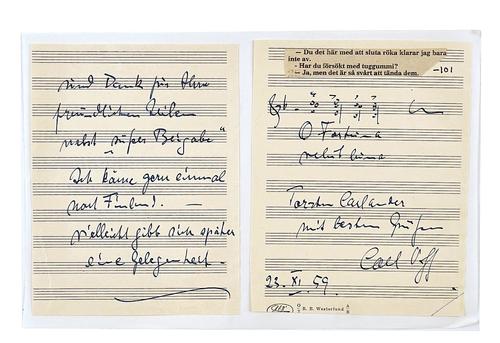 und Dank für Ihre
freundlichen Zeilen
nebst "süßer Beigabe"
Ich käme gern einmal
nach Finland. —
vielleicht gibt sich später
eine Gelegenheit.
— Du det här med att sluta röka klarar jag bara
inte av.
- Har du försökt med tuggummi?
— Ja, men det är så svårt att tända dem.
-101
O Fortuna
velut luna
Torsten Carlander
mit besten Grüßen
Carl Orff
23. XI. 59
R. E. Westerlund